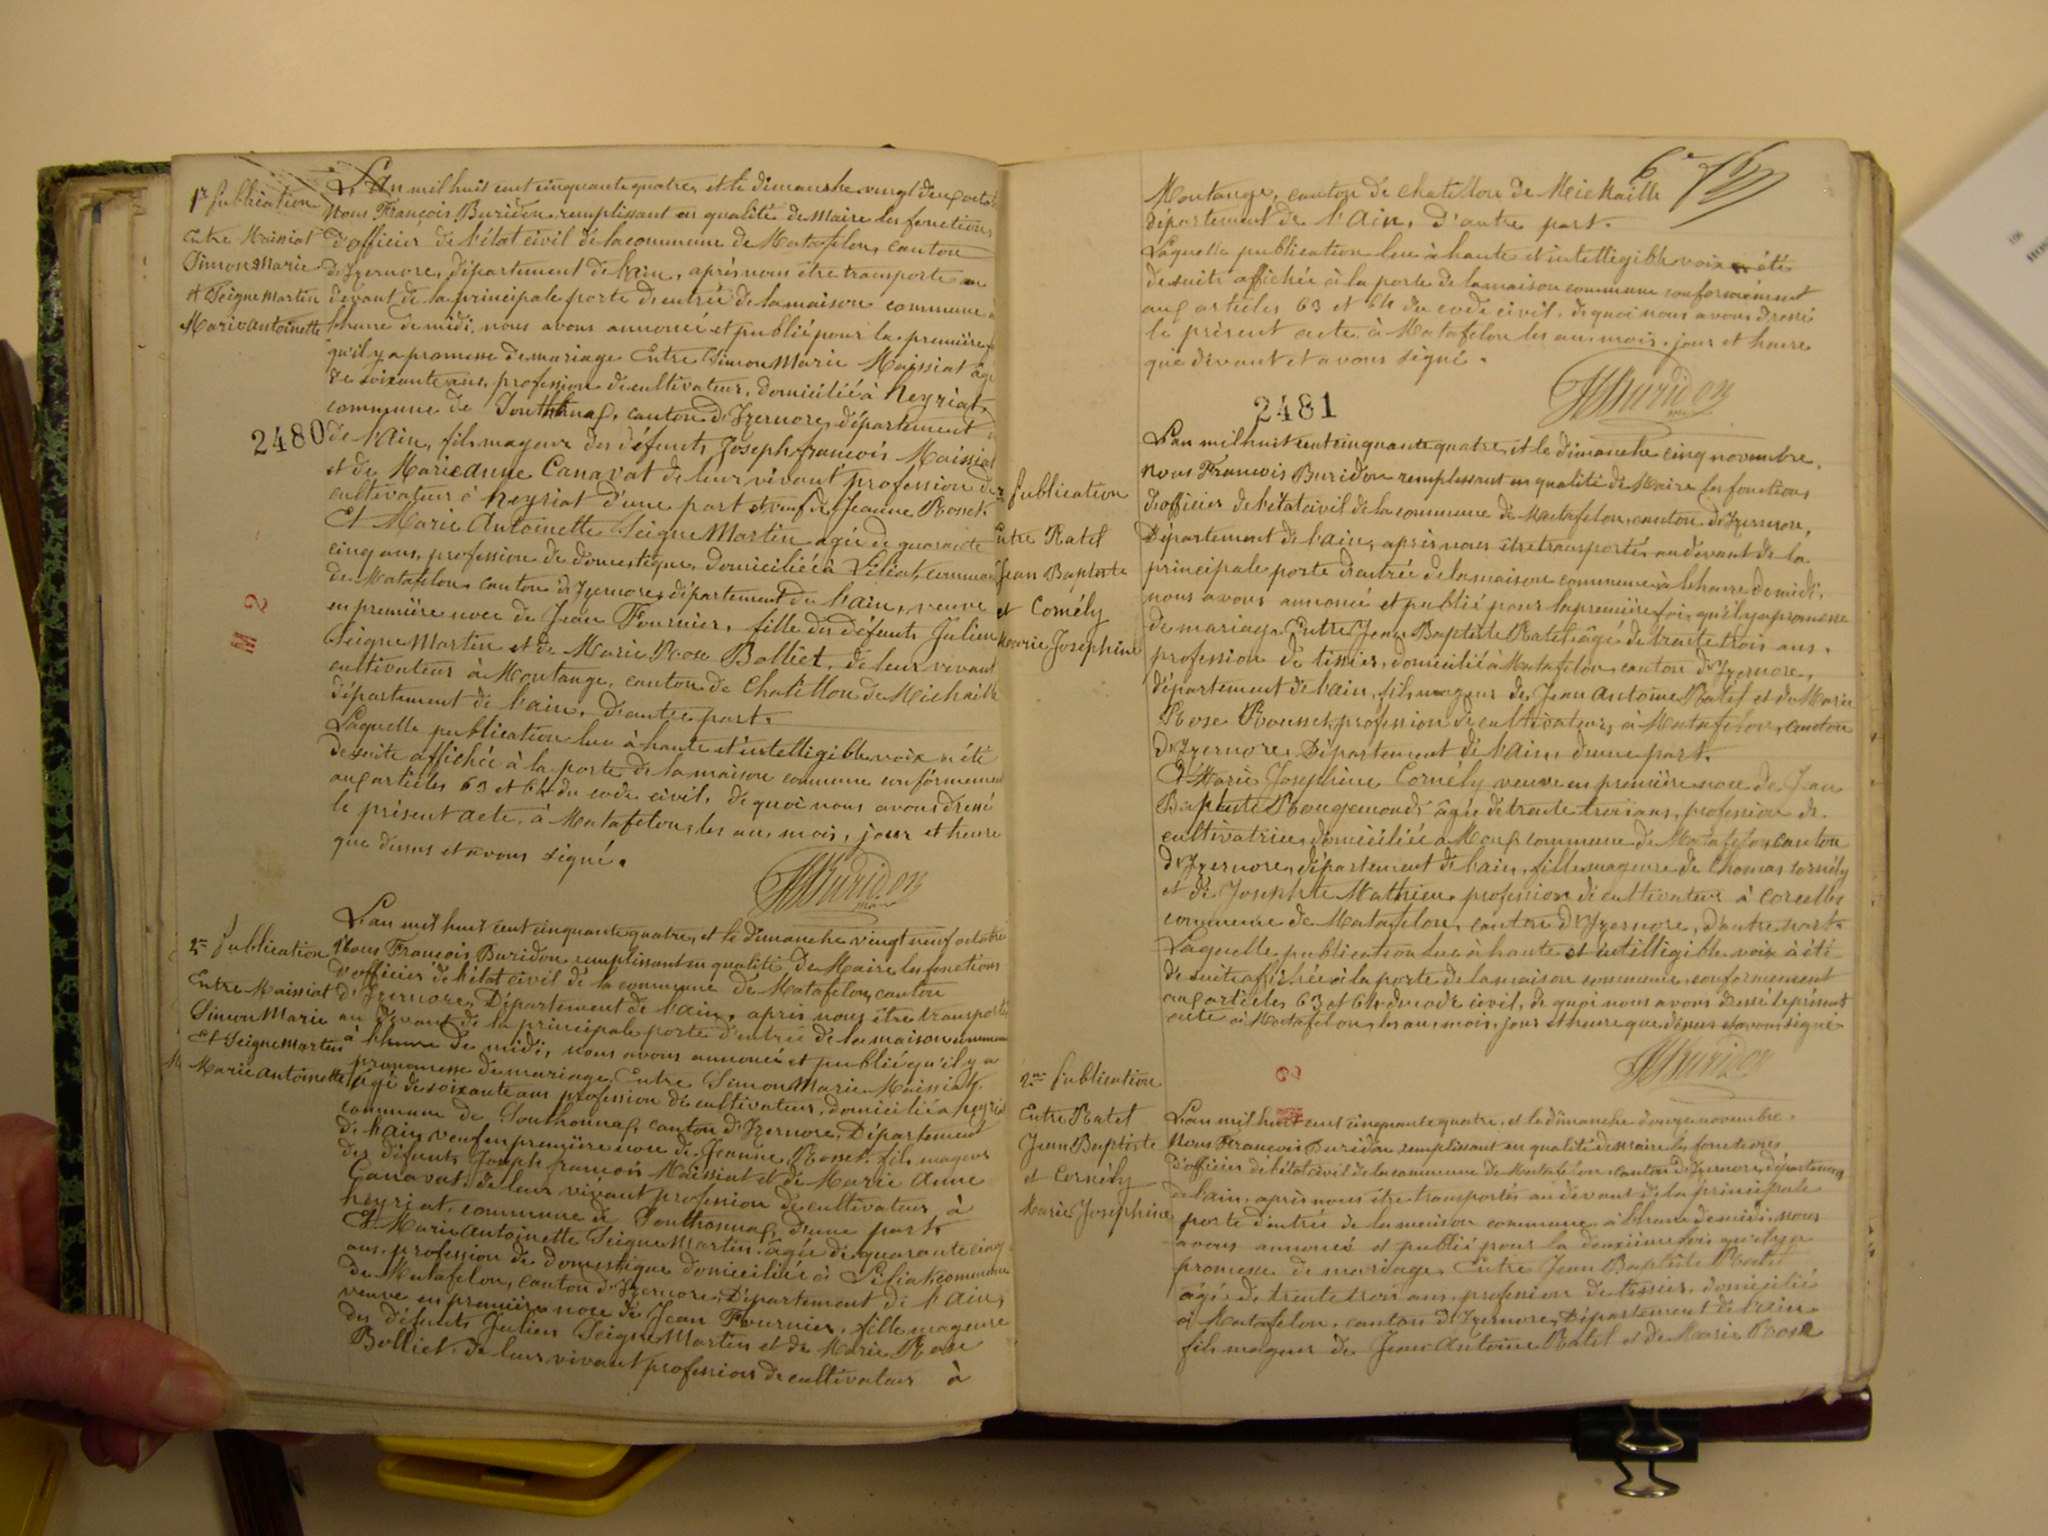 1re publication
Entre Maissiat
Simon Marie
et Seigne Martin
Marie Antoinette
L'an mil huit cent cinquante quatre, et le dimanche vingt deux octob
Nous François Buridon, remplissant en qualité de Maire les fonctions
d'officier de l'état civil de la commune de Matafelon, canton
d'Izernore, département de l'ain, après nous être transporté au
devant de la principale porte d'entrée de la maison commune à
l'heure de midi, nous avons annoncé et publié pour la première
qu'il y a promesse de mariage Entre Simon Marie Maissiat âgé
de soixante ans, profession de cultivateur, domicilié à heyriat,
commune de Sonthnax, canton d'Izernore, département
2480
de l'ain, fils majeur des défunts Joseph françois Maissiat
et de Marie anne Canavat de leur vivant profession de
cultivateur à heyriat d'une part et veuf de Jeanne Rosset.
Et Marie Antoinette Seigne Martin agée de quarante
cinq ans, profession de domestique, domiciliée à Siliat, commune
de Matafelon canton d'Izernore, département de l'ain, veuve
en première noce de Jean Fournier, fille des défunts Julien
Seigne Martin et de Marie Rose Bolliet, de leur vivant
cultivateur à Montange, canton de Chatillon de Michaille
département de l'ain, d'autre part.
Laquelle publication lue à haute et intelligible voix a été
de suite affichée à la porte de la maison commune conformément
aux articles 63 et 64 du code civil, de quoi nous avons dressé
le présent acte, à Matafelon, les an, mois, jour et heure
que dessus et avons signé.
Buridon
maire
M 2
2me publication
Entre Maissiat
Simon Marie
et Seigne Martin
Marie Antoinette
L'an mil huit cent cinquante quatre, et le dimanche vingt neuf octobre
Nous François Buridon remplissant en qualité de Maire les fonctions
d'officier de l'état civil de la commune de Matafelon, canton
d'Izernore, Département de l'ain, après nous être transporté
au devant de la principale porte d'entrée de la maison commune
à l'heure de midi, nous avons annoncé et publié qu'il y a
promesse de mariage Entre Simon Marie Maissiat,
âgé de soixante ans profession de cultivateur, domicilié à heyriat
commune de Sonthonnax, canton d'Izernore, Département
de l'ain veuf en première noce de Jeanne Rosset, fils majeur
des défunts Joseph françois Maissiat et de Marie Anne
Canavat, de leur vivant profession de cultivateur à
heyriat, commune de Sonthonnax, d'une part.
Et Marie antoinette Seigne Martin âgée de quarante cinq
ans, profession de domestique domiciliée à Siliat commune
de Matafelon, canton d'Izernore, Département de l'Ain,
veuve en première noce de Jean Fournier, fille majeure
des défunts Julien Seigne Martin et de Marie Rose
Bolliet, de leur vivant profession de cultivateur à
6e
Montange, canton de Chatillon de Michaille
département de l'Ain, d'autre part.
Laquelle publication lue à haute et intelligible voix a été
de suite affichée à la porte de la maison commune conformément
aux articles 63 et 64 du code civil, de quoi nous avons dressé
le présent acte à Matafelon les an, mois, jour et heure
que devant et avons signé.
Buridon
2481
publication
Entre Ratel
Jean Baptiste
et Cornély
Marie Josephine
L'an mil huit cent cinquante quatre, et le dimanche cinq novembre,
Nous François Buridon remplissant en qualité de Maire les fonctions
d'officier de l'état civil de la commune de Matafelon, canton d'Izernore,
Département de l'ain, après nous être transporté au devant de la
principale porte d'entrée de la maison commune à l'heure de midi,
nous avons annoncé et publié pour la première fois, qu'il y a promesse
de mariage Entre Jean Baptiste Ratel âgé de trente trois ans,
profession de tissier, domicilié à Matafelon canton d'Izernore,
département de l'ain, fils majeur de Jean Antoine Ratel et de Marie
Rose Rousset, profession de cultivateur, à Matafelon, canton
d'Izernore, Département de l'ain d'une part.
Et Marie Josephine Cornély veuve en première noce de Jean
Baptiste Rougemond âgée de trente trois ans, profession de
cultivatrice, domiciliée à Moux commune de Matafelon, canton
d'Izernore, département de l'ain, fille majeure de Thomas Cornély
et de Josephte Mathieu profession de cultivateur à Corcelles
commune de Matafelon, canton d'Izernore, d'autre part.
Laquelle publication lue à haute et intelligible voix a été
de suite affichée à la porte de la maison commune, conformément
aux articles 63 et 64 du code civil, de quoi nous avons dressé le présent
acte à Matafelon, les an, mois, jour et heure que dessus et avons signé
Buridon
2me publication
Entre Ratel
Jean Baptiste
et Cornély
Marie Josephine
L'an mil huit cent cinquante quatre, et le dimanche douze novembre.
Nous François Buridon remplissant en qualité de maire les fonctions
d'officier de l'état civil de la commune de Matafelon, canton d'Izernore, département
de l'ain, après nous être transporté au devant de la principale
porte d'entrée de la maison commune à l'heure de midi, nous
avons annoncé et publié pour la deuxième fois qu'il y a
promesse de mariage, Entre Jean Baptiste Ratel
âgé de trente trois ans, profession de tissier, domicilié
à Matafelon, canton d'Izernore, Département de l'ain
fils majeur de Jean Antoine Ratel et de Marie Rose